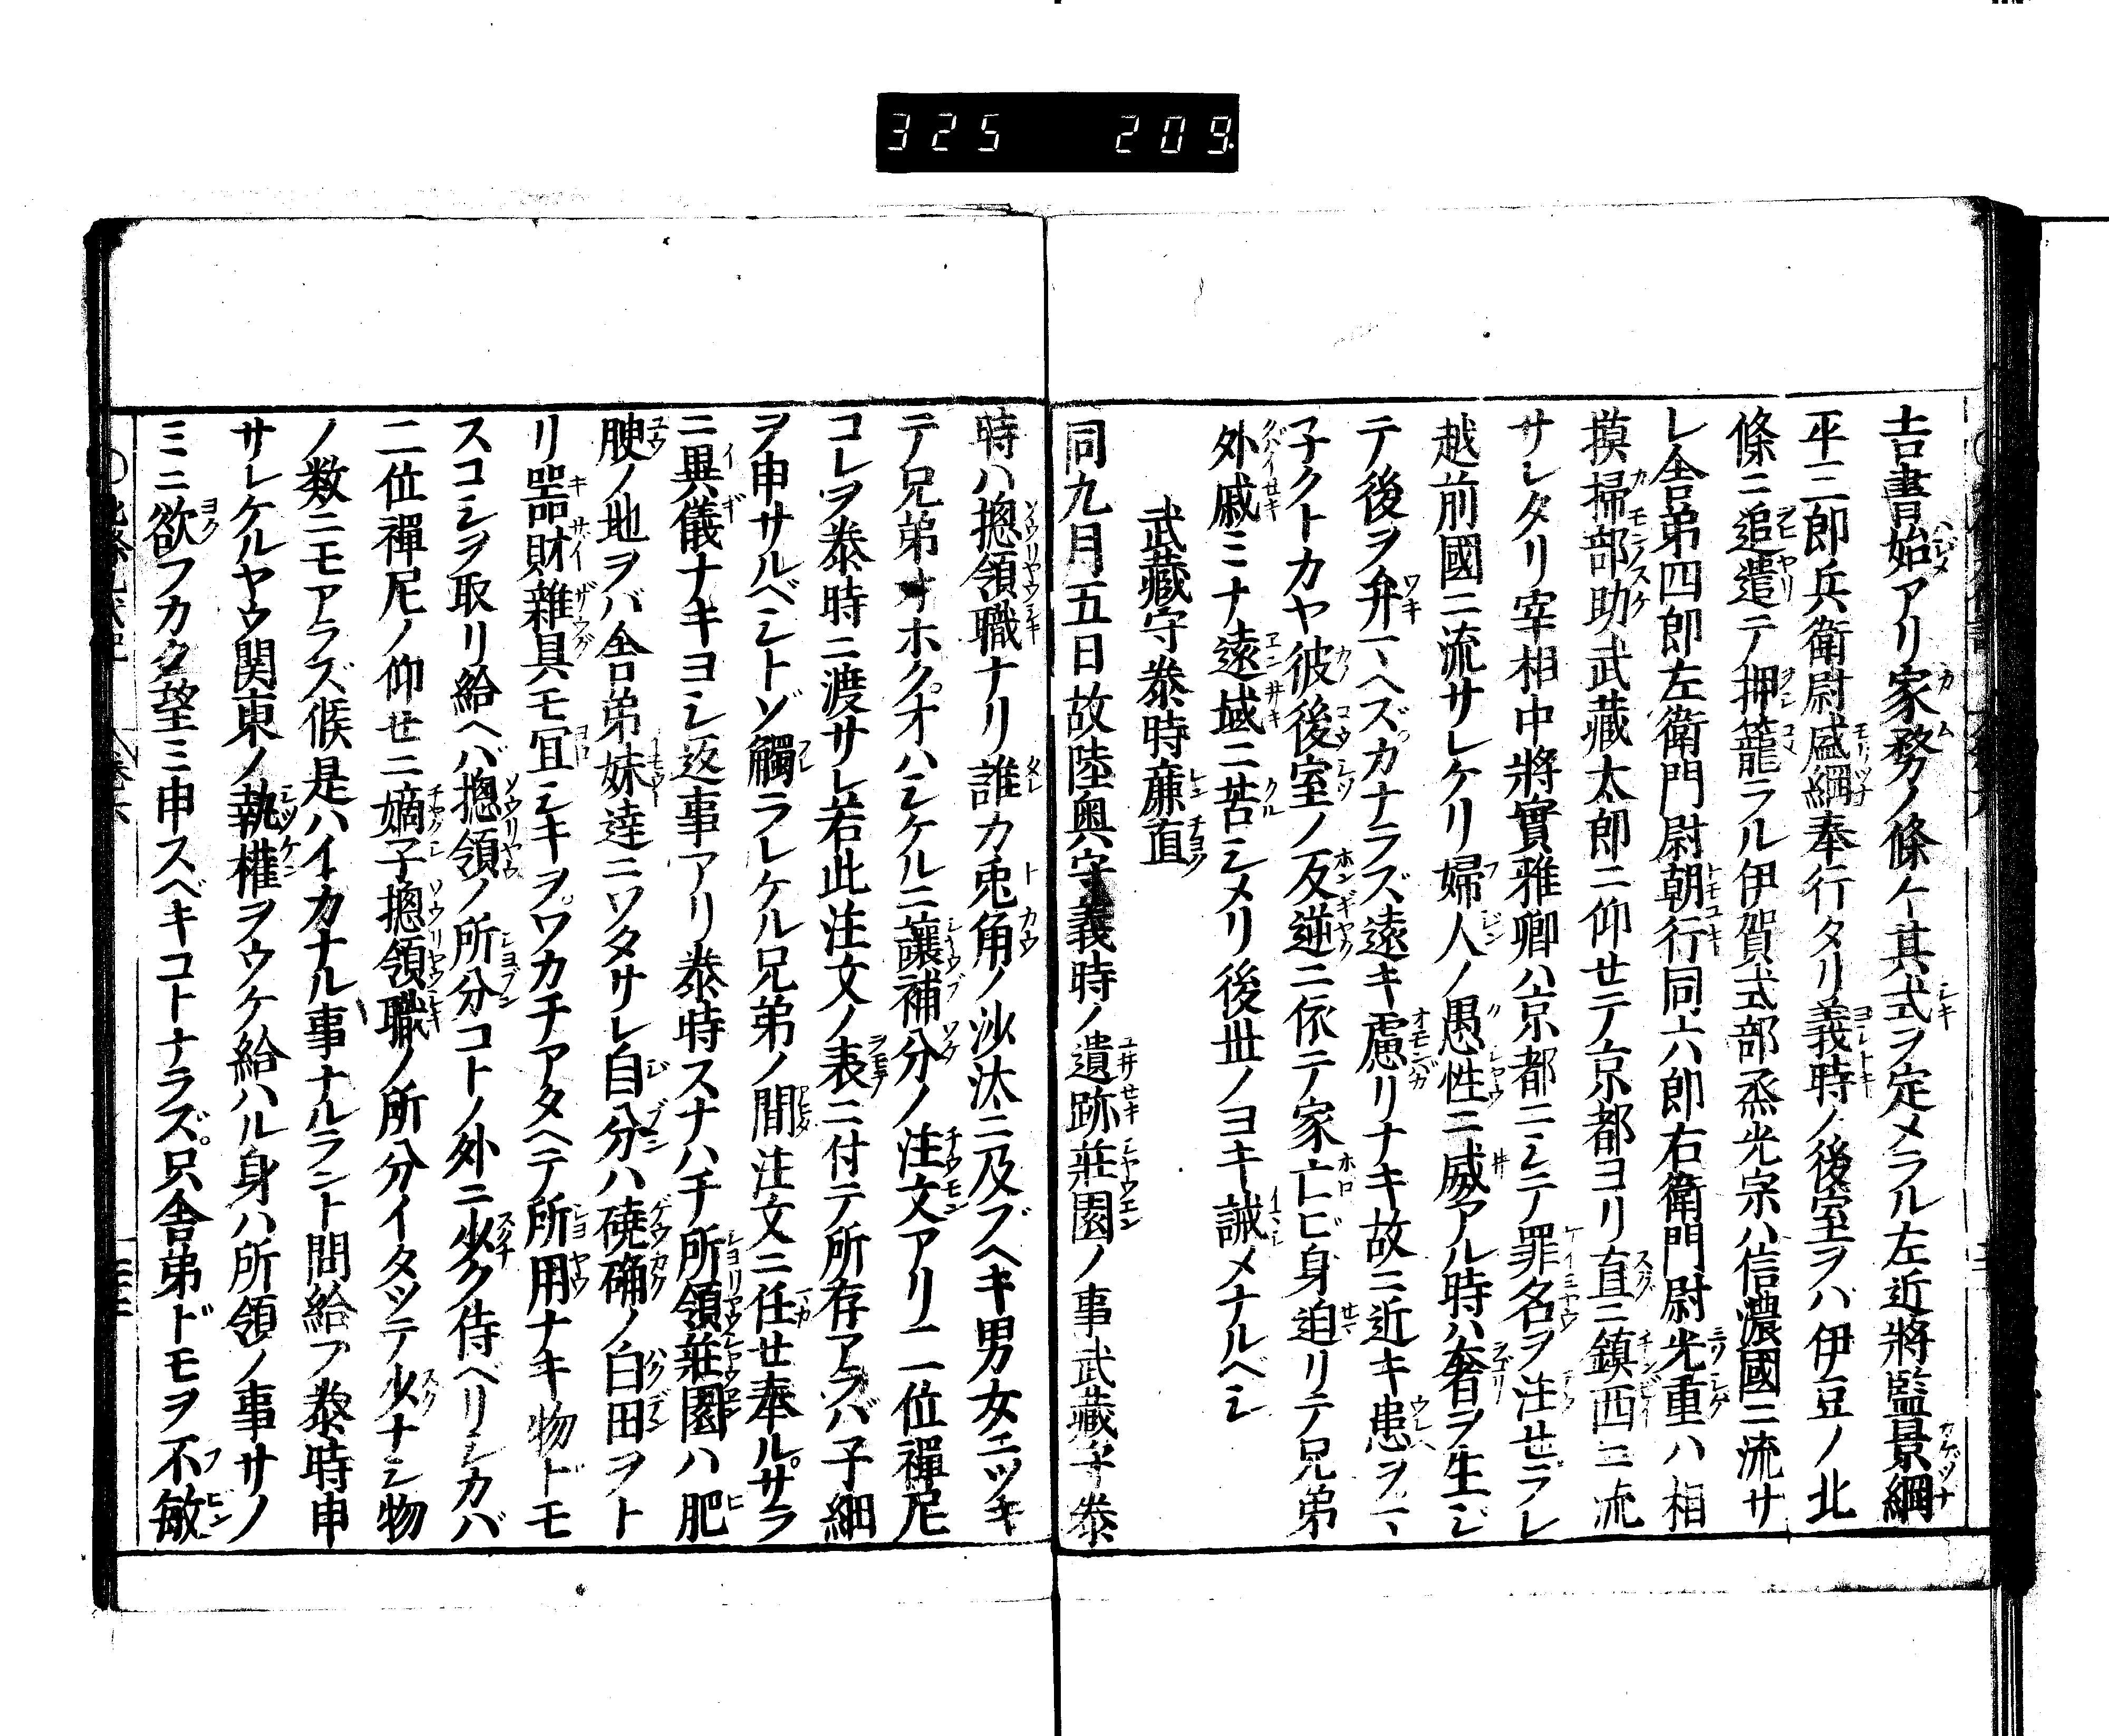 325 209
吉書始アリ家務ノ條ケ其式ヲ定メラル左近將監景綱
平三郎兵衛尉盛綱奉行タリ義時ノ後室ヲハ伊豆ノ北
條ニ追遣テ押籠ラル伊賀式部烝光宗ハ信濃國ニ流サ
レ舎弟四郎左衛門尉朝行同六郎右衛門尉光重ハ相
摸掃部助武藏太郎ニ仰セテ京都ヨリ直ニ鎮西ニ流
サレタリ宰相中將實雅卿ハ京都ニシテ罪名ヲ注セラレ
越前國ニ流サレケリ婦人ノ愚性ニ威アル時ハ奢ヲ生ジ
テ後ヲ弁マヘズカナラズ遠キ慮リナキ故ニ近キ患ヲマ
子クトカヤ彼後室ノ反逆ニ依テ家亡ビ身迫リテ兄弟
外戚ミナ遠域ニ苦シメリ後世ノヨキ誡メナルベシ
武藏守泰時廉直
同九月五日故陸奥守義時ノ遺跡莊園ノ事武藏守泰
時ハ摠領職ナリ誰カ兎角ノ沙汰ニ及ブヘキ男女ニツキ
テ兄弟オホクオハシケルニ讓補分ノ注文アリ二位禪尼
コレヲ泰時ニ渡サレ若此注文ノ表ニ付テ所存アラバ子細
ヲ申サルベシトゾ觸ラレケル兄弟ノ間注文ニ任セ奉ルサラ
ニ異儀ナキヨシ返事アリ泰時スナハチ所領莊園ハ肥
腴ノ地ヲバ舎弟妹達ニワタサレ自分ハ磽确ノ白田ヲト
リ噐財雜具モ冝シキヲワカチアタヘテ所用ナキ物ドモ
スコシヲ取リ給ヘバ摠領ノ所分コトノ外ニ少ク侍ベリシカバ
二位禪尼ノ仰セニ嫡子摠領職ノ所分イタツテ少ナシ物
ノ数ニモアラズ候是ハイカナル事ナルラント問給フ泰時申
サレケルヤウ関東ノ執權ヲウケ給ハル身ハ所領ノ事サノ
ミニ欲フカク望ミ申スベキコトナラズ。只舎弟ドモヲ不敏